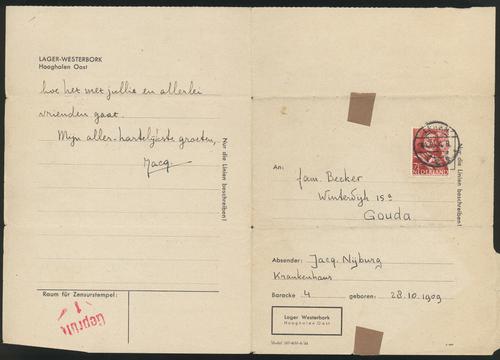 LAGER-WESTERBORK
Hooghalen Oost
hoe het met jullie en allerlei
vrienden gaat.
Mijn aller-hartelijkste groeten,
Jacq.
Nur die Linien beschreiben!
Raum für Zensurstempel:
Geprüft
1
GOUDA
NEDERLAND
Nur die Linien beschreiben!
An:
fam. Becker
Winterdijk 15a
Gouda
Absender: Jacq. Nijburg
Krankenhaus
Baracke 4 geboren: 28.10.1909
Lager Westerbork
Hooghalen Oost